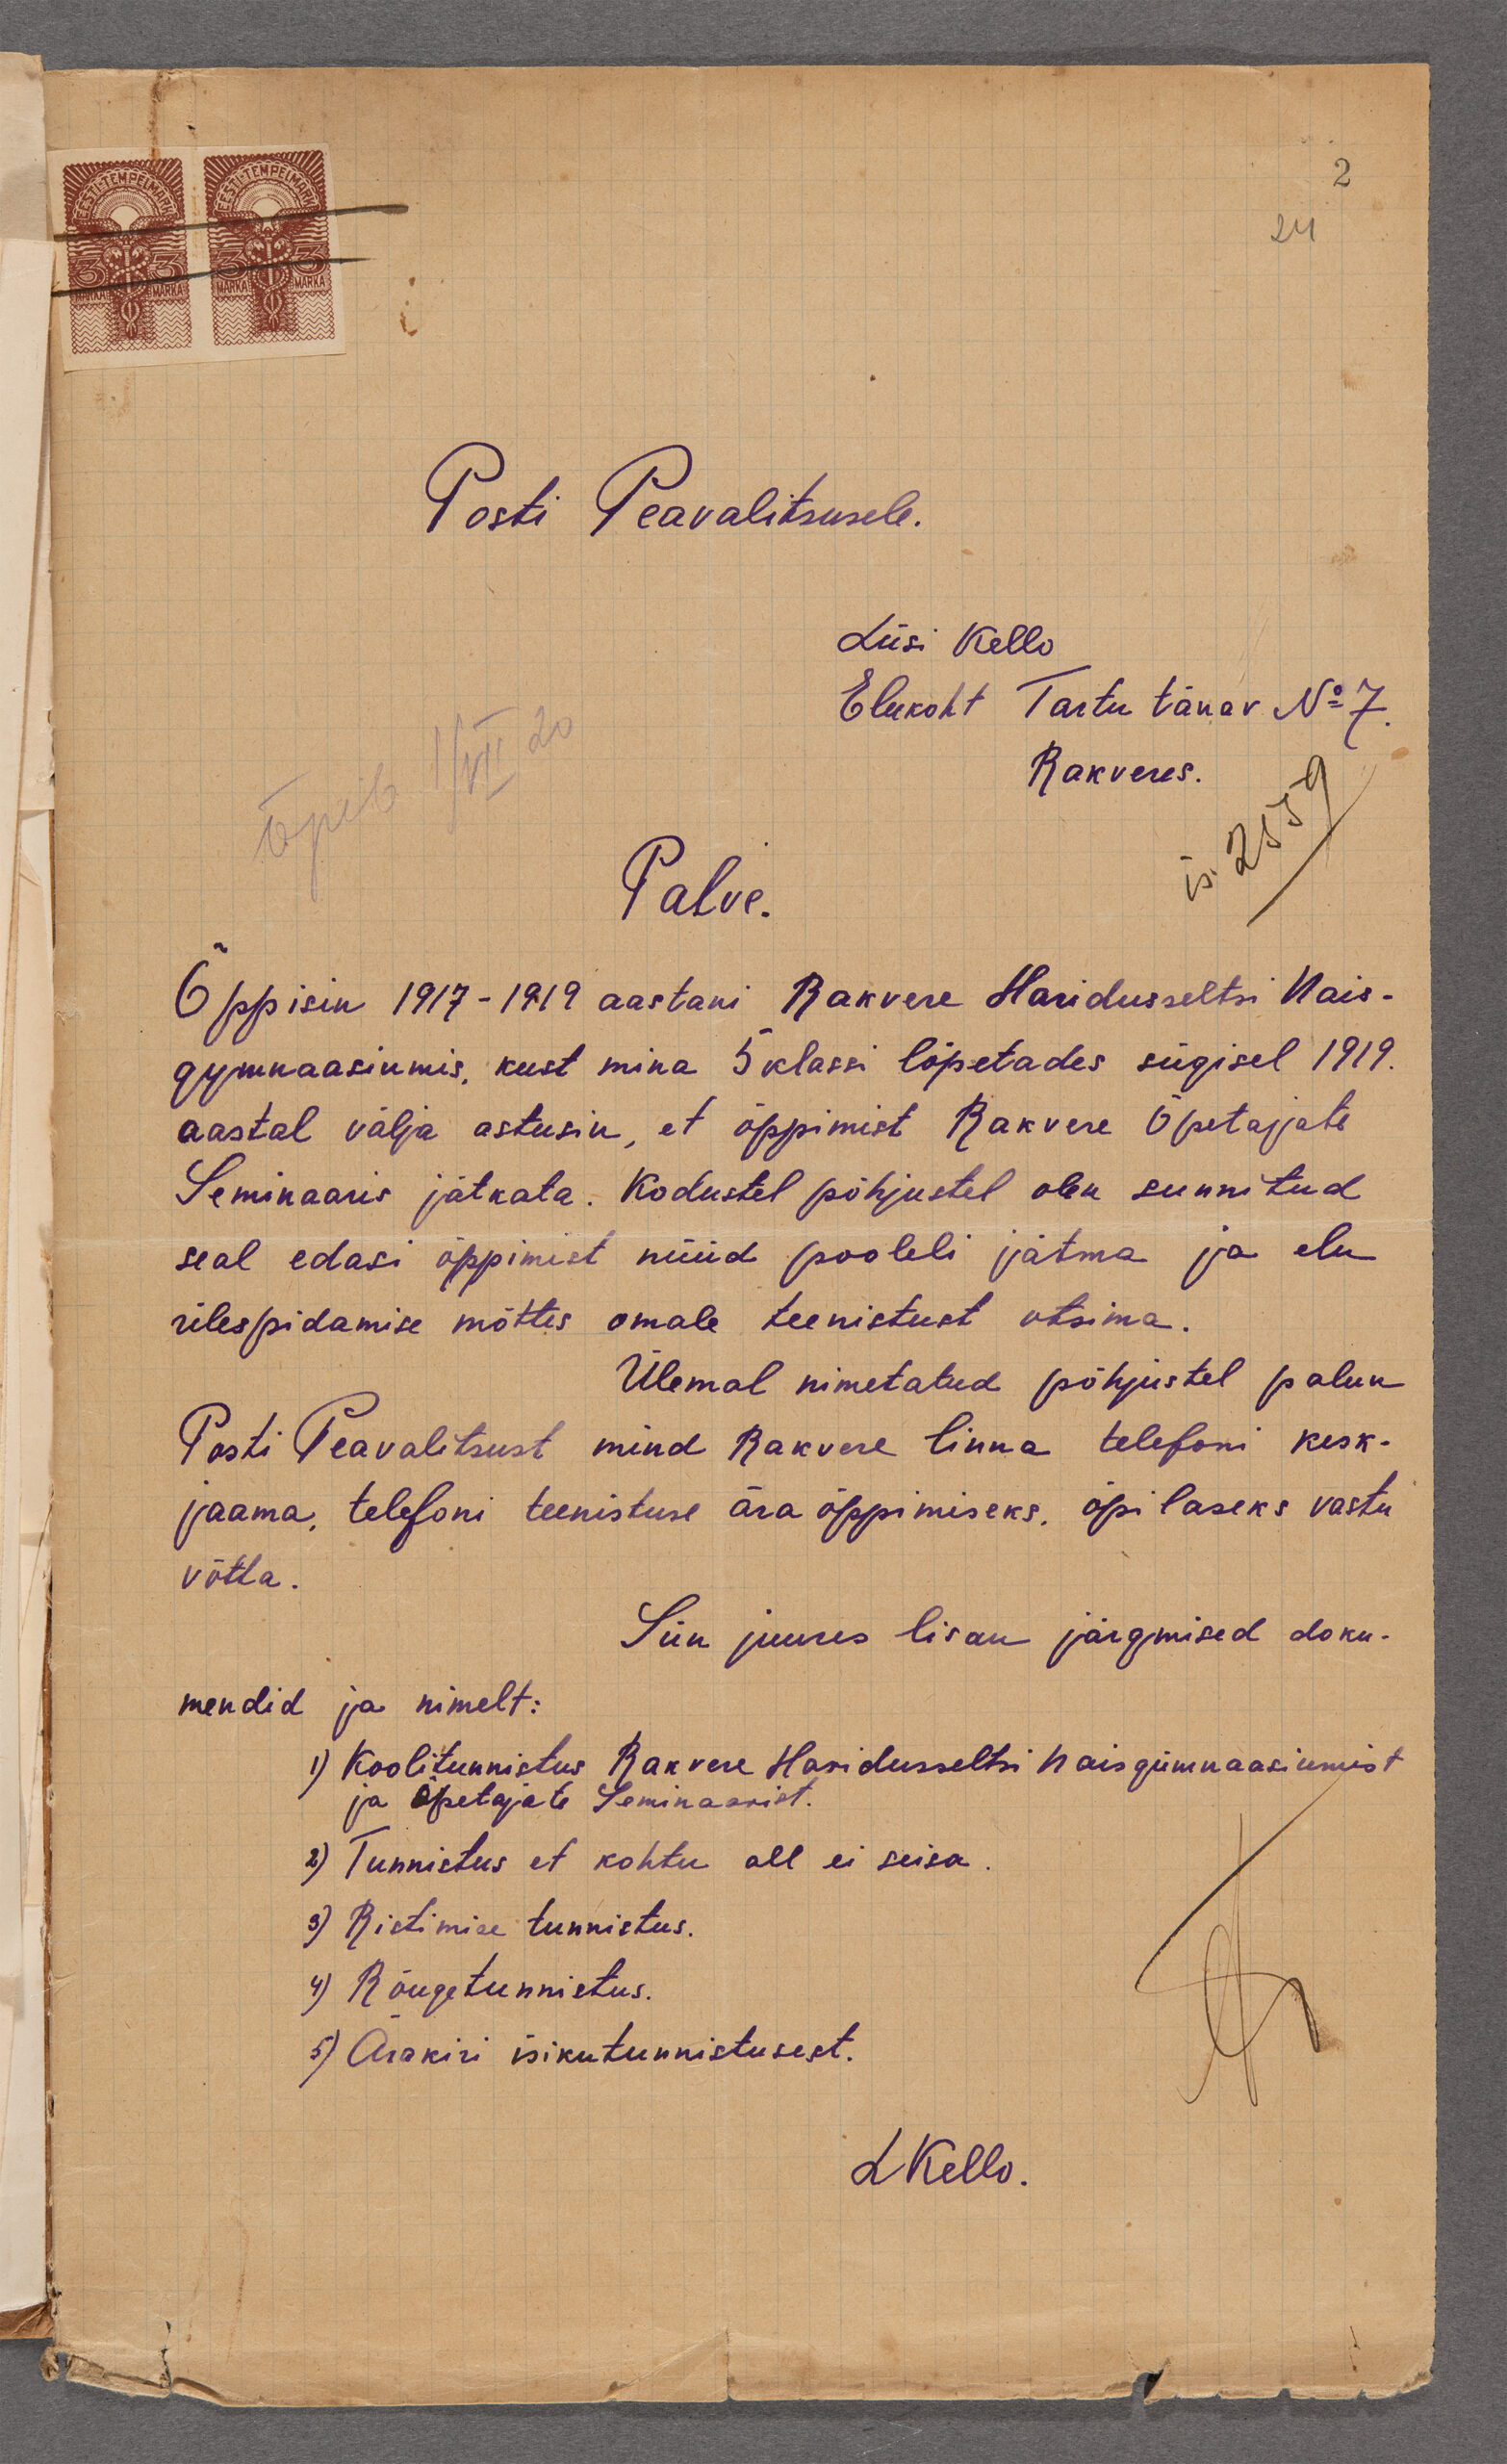 2
24
EESTI-TEMPELMARK EESTI-TEMPELMARK
3 3 3 3
MARKA MARKA MARKA MARKA
Posti Peavalitsusele.
Liisi Kello
Elukoht Tartu tänav № 7.
Rakveres.
õpib 1/VII 20
is. 2559
Palve.
Õppisin 1917-1919 aastani Rakvere Haridusseltsi Nais-
gymnaasiumis, kust mina 5 klassi lõpetades sügisel 1919.
aastal välja astusin, et õppimist Rakvere Õpetajate
Seminaaris jätkata. Kodustel põhjustel olen sunnitud
seal edasi õppimist nüüd pooleli jätma ja elu
ülespidamise mõttes omale teenistust otsima.
Ülemal nimetatud põhjustel palun
Posti Peavalitsust mind Rakvere linna telefoni kesk-
jaama, telefoni teenistuse ära õppimiseks, õpilaseks vastu
võtta.
Siin juures lisan järgmised doku-
mendid ja nimelt:
1) Koolitunnistus Rakvere Haridusseltsi Naisgümnaasiumist
ja Õpetajate Seminaarist.
2) Tunnistus et kohtu all ei seisa.
3) Ristimise tunnistus.
4) Rõugetunnistus.
5) Ärakiri isikutunnistusest.
LKello.